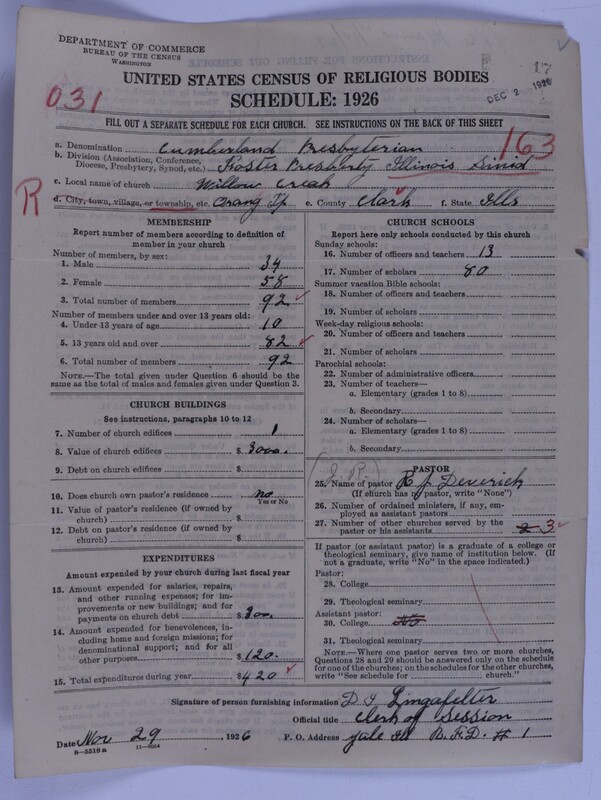 DEPARTMENT OF COMMERCE
BUREAU OF THE CENSUS
WASHINGTON
17
DEC 2 1926
UNITED STATES CENSUS OF RELIGIOUS BODIES
031
SCHEDULE: 1926
FILL OUT A SEPARATE SCHEDULE FOR EACH CHURCH. SEE INSTRUCTIONS ON THE BACK OF THIS SHEET
163
a. Denomination Cumberland Presbyterian
b. Division (Association, Conference, Diocese, Presbytery, Synod, etc.) Foster Illinois
c. Local name of church Willow Creek
R
d. City, town, village, or township, etc. Orang Tp. e. County Clark f. State Ills
MEMBERSHIP
Report number of members according to definition of member in your church
Number of members, by sex:
1. Male 34
2. Female 58
3. Total number of members 92
Number of members under and over 13 years old:
4. Under 13 years of age 10
5. 13 years old and over 82
6. Total number of members 92
NOTE.—The total given under Question 6 should be the same as the total of males and females given under Question 3.
CHURCH BUILDINGS
See instructions, paragraphs 10 to 12
7. Number of church edifices 1
8. Value of church edifices $ 3000.
9. Debt on church edifices $
10. Does church own pastor's residence no
Yes or No
11. Value of pastor's residence (if owned by church) $
12. Debt on pastor's residence (if owned by church) $
EXPENDITURES
Amount expended by your church during last fiscal year
13. Amount expended for salaries, repairs, and other running expenses; for improvements or new buildings; and for payments on church debt $ 300.
14. Amount expended for benevolences, including home and foreign missions; for denominational support; and for all other purposes $ 120.
15. Total expenditures during year $ 420
CHURCH SCHOOLS
Report here only schools conducted by this church
Sunday schools:
16. Number of officers and teachers 13
17. Number of scholars 80
Summer vacation Bible schools:
18. Number of officers and teachers
19. Number of scholars
Week-day religious schools:
20. Number of officers and teachers
21. Number of scholars
Parochial schools:
22. Number of administrative officers
23. Number of teachers—
a. Elementary (grades 1 to 8)
b. Secondary
24. Number of scholars—
a. Elementary (grades 1 to 8)
b. Secondary
PASTOR
25. Name of pastor R J Deverick
(If church has no pastor, write "None")
26. Number of ordained ministers, if any, employed as assistant pastors
27. Number of other churches served by the pastor or his assistants 2 3
If pastor (or assistant pastor) is a graduate of a college or theological seminary, give name of institution below. (If not a graduate, write "No" in the space indicated.)
Pastor:
28. College
29. Theological seminary
Assistant pastor:
30. College No
31. Theological seminary
NOTE.—Where one pastor serves two or more churches, Questions 28 and 29 should be answered only on the schedule for one of the churches; on the schedules for the other churches, write "See schedule for church."
Signature of person furnishing information D I Lingafelter
Official title Clerk of Session
Date Nov 29, 1926 P. O. Address Yale Ill R.F.D. # 1
8—5518a 11—9554